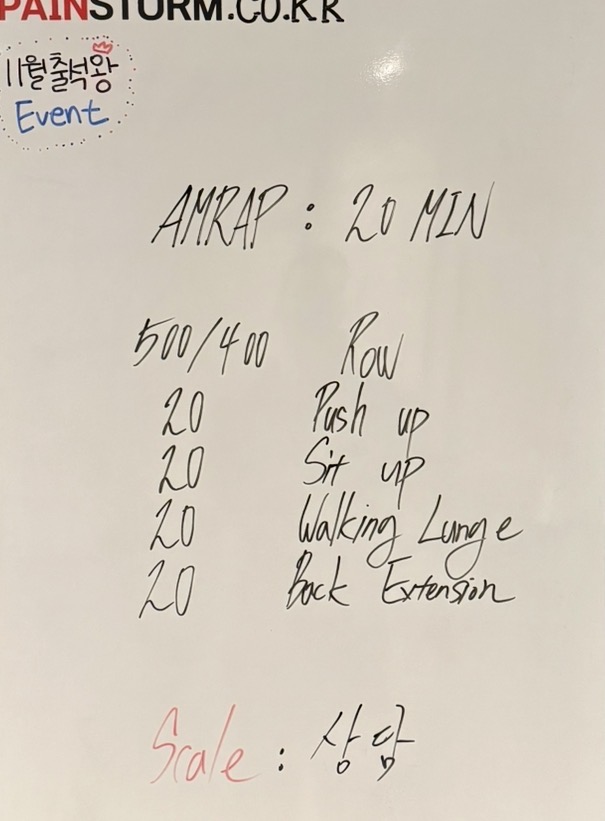 PAINSTORM.CO.KR
11월 출석왕
Event
AMRAP : 20 MIN
500/400 Row
20 Push up
20 Sit up
20 Walking Lunge
20 Back Extension
Scale : 상담